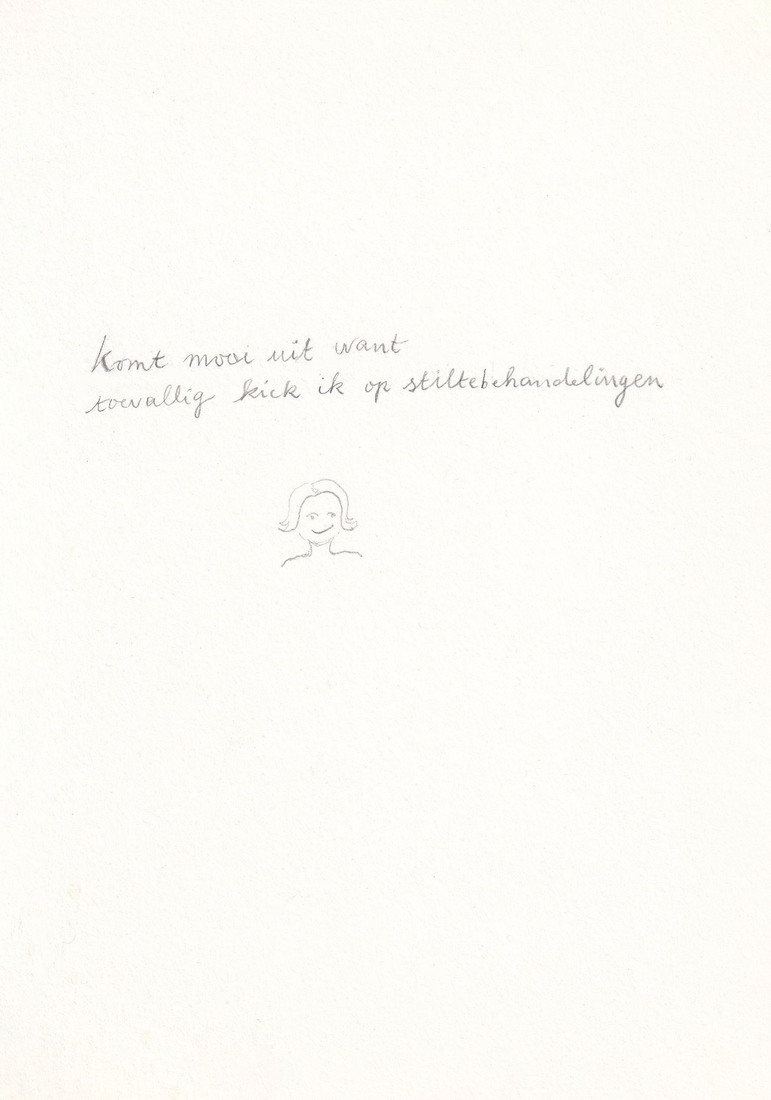 komt mooi uit want
toevallig kick ik op stiltebehandelingen